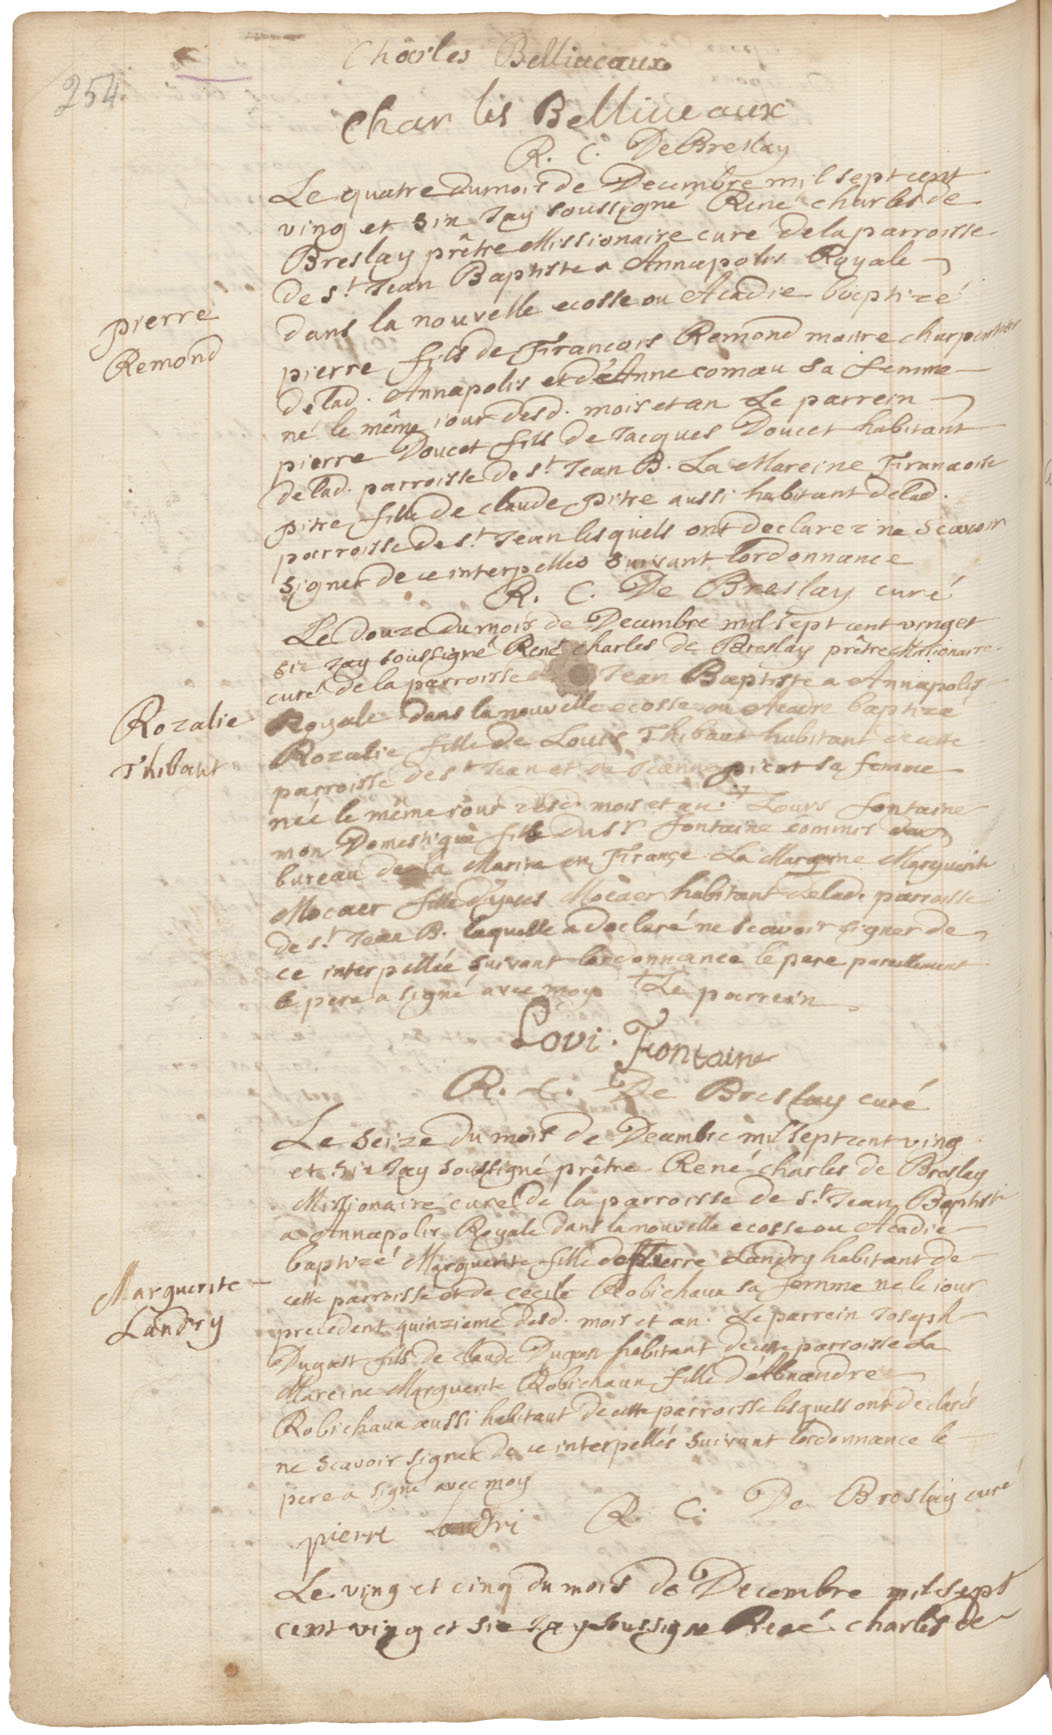 254.
Charles Belliveaux
Charles Belliveaux
R. C. De Breslay
Le quatre du mois de Decembre mil sept cent
ving et six Jay soussigné René charles de
Breslay prêtre Missionaire curé de la parroisse
de St. Jean Baptiste a Annapolis Royale
dans la nouvelle ecosse ou Acadie baptizé
pierre
Remond
pierre fils de Francois Remond maitre charpentier
de lad. Annapolis et d'Anne comau sa femme
né le même jour desd. mois et an Le parrein
pierre Doucet fils de Jacques Doucet habitant
de lad. parroisse de St. Jean B. La Mareine Francoise
pitre fille de claude pitre aussi habitant de lad.
parroisse de St. Jean lesquels ont declarez ne scavoir
signer de ce interpelles suivant lordonnance
R. C. De Breslay curé
Le douze du mois de Decembre mil sept cent ving et
six Jay soussigné René charles de Breslay prêtre Missionaire
curé de la parroisse Jean Baptiste a Annapolis
Royale dans la nouvelle ecosse ou Acadie baptizé
Rozalie
Thibaut
Rozalie fille de Louis Thibaut habitant de cette
parroisse de St Jean et de Jeanne picot sa femme
née le même jour desd. mois et an. + Louis fontaine
mon Domestique fils du Sr. fontaine commis au
bureau de la Marine en France La Mareine Marguerite
Mocaer fille Mocaer habitant de lad. parroisse
de St. Jean B. laquelle a declaré ne scavoir signer de
ce interpellée suivant lordonnance le pere pareillement
le pere a signé avec moy + Le parrein
Lovi. Fontaine
R. C. De Breslay curé
Le seize du mois de Decembre mil sept cent ving
et six Jay soussigné prêtre René charles de Breslay
Missionaire curé de la parroisse de St. Jean Baptiste
a Annapolis Royale dans la nouvelle ecosse ou Acadie
baptizé Marguerite fille de pierre Landry habitant de
Marguerite
Landry
cette parroisse et de cécile Robichaux sa femme ne le iour
precedent quinzieme desd. mois et an. Le parrein Joseph
Dugast fils de claude Dugast habitant de cette parroisse La
Mareine Marguerite Robichaux fille d'Allexandre
Robichaux aussi habitant de cette parroisse lesquels ont declarés
ne scavoir signer de ce interpellés suivant lordonnance le
pere a signé avec moy
pierre Landri R. C. De Breslay curé
Le ving et cinq du mois de Decembre mil sept
cent ving et six Jay soussigné René charles de